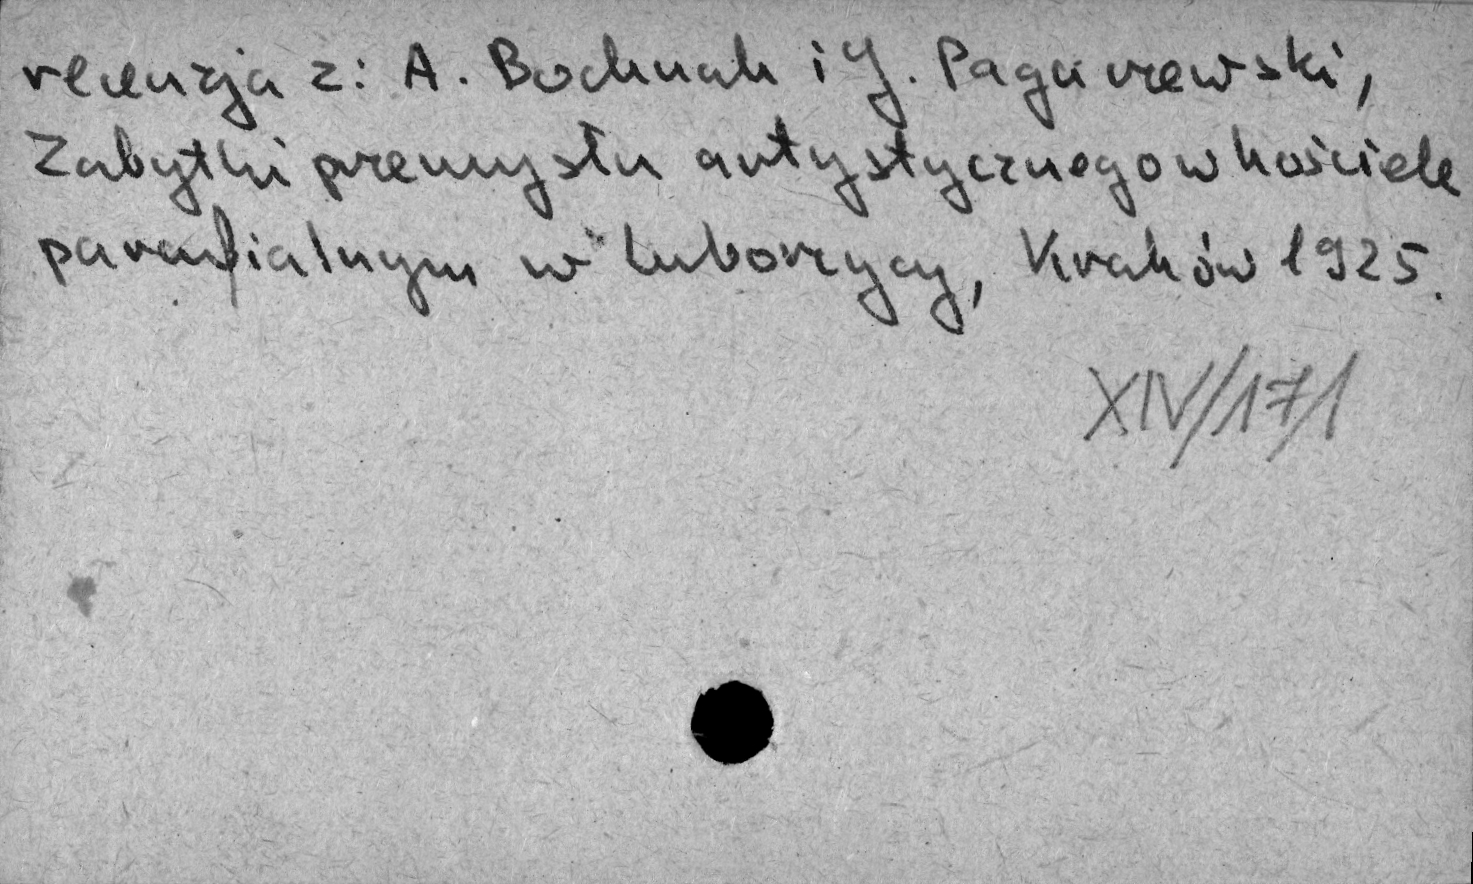 recenzja z: A. Bochnak i J. Pagaczewski,
Zabytki przemysłu artystycznego w kościele
parafialnym w Luborzycy, Kraków 1925.
XIV/171